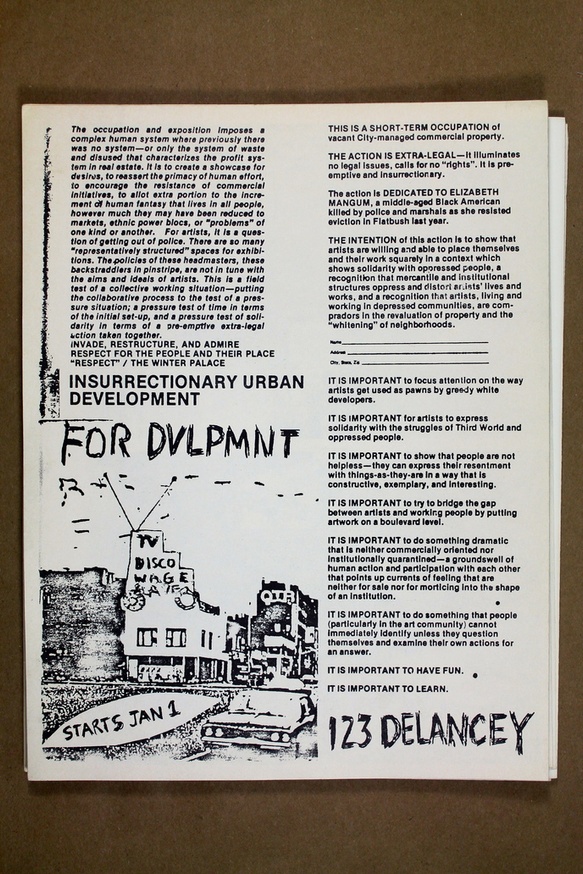 The occupation and exposition imposes a
complex human system where previously there
was no system—or only the system of waste
and disused that characterizes the profit sys-
tem in real estate. It is to create a showcase for
desirus, to reassert the primacy of human effort,
to encourage the resistance of commercial
initiatives, to allot extra portion to the incre-
ment of human fantasy that lives in all people,
however much they may have been reduced to
markets, ethnic power blocs, or "problems" of
one kind or another. For artists, it is a ques-
tion of getting out of police. There are so many
"representatively structured" spaces for exhibi-
tions. The policies of these headmasters, these
backstraddlers in pinstripe, are not in tune with
the aims and ideals of artists. This is a field
test of a collective working situation—putting
the collaborative process to the test of a pres-
sure situation; a pressure test of time in terms
of the initial set-up, and a pressure test of soli-
darity in terms of a pre-emptive extra-legal
action taken together.
INVADE, RESTRUCTURE, AND ADMIRE
RESPECT FOR THE PEOPLE AND THEIR PLACE
"RESPECT" / THE WINTER PALACE
INSURRECTIONARY URBAN
DEVELOPMENT
FOR DVLPMNT
TV
DISCO
WAGE
STARTS JAN 1
THIS IS A SHORT-TERM OCCUPATION of
vacant City-managed commercial property.
THE ACTION IS EXTRA-LEGAL—it illuminates
no legal issues, calls for no "rights". It is pre-
emptive and insurrectionary.
The action is DEDICATED TO ELIZABETH
MANGUM, a middle-aged Black American
killed by police and marshals as she resisted
eviction in Flatbush last year.
THE INTENTION of this action is to show that
artists are willing and able to place themselves
and their work squarely in a context which
shows solidarity with oppressed people, a
recognition that mercantile and institutional
structures oppress and distort artists' lives and
works, and a recognition that artists, living and
working in depressed communities, are com-
pradors in the revaluation of property and the
"whitening" of neighborhoods.
Name
Address
City, State, Zip
IT IS IMPORTANT to focus attention on the way
artists get used as pawns by greedy white
developers.
IT IS IMPORTANT for artists to express
solidarity with the struggles of Third World and
oppressed people.
IT IS IMPORTANT to show that people are not
helpless—they can express their resentment
with things-as-they-are in a way that is
constructive, exemplary, and interesting.
IT IS IMPORTANT to try to bridge the gap
between artists and working people by putting
artwork on a boulevard level.
IT IS IMPORTANT to do something dramatic
that is neither commercially oriented nor
institutionally quarantined—a groundswell of
human action and participation with each other
that points up currents of feeling that are
neither for sale nor for morticing into the shape
of an institution.
IT IS IMPORTANT to do something that people
(particularly in the art community) cannot
immediately identify unless they question
themselves and examine their own actions for
an answer.
IT IS IMPORTANT TO HAVE FUN.
IT IS IMPORTANT TO LEARN.
123 DELANCEY